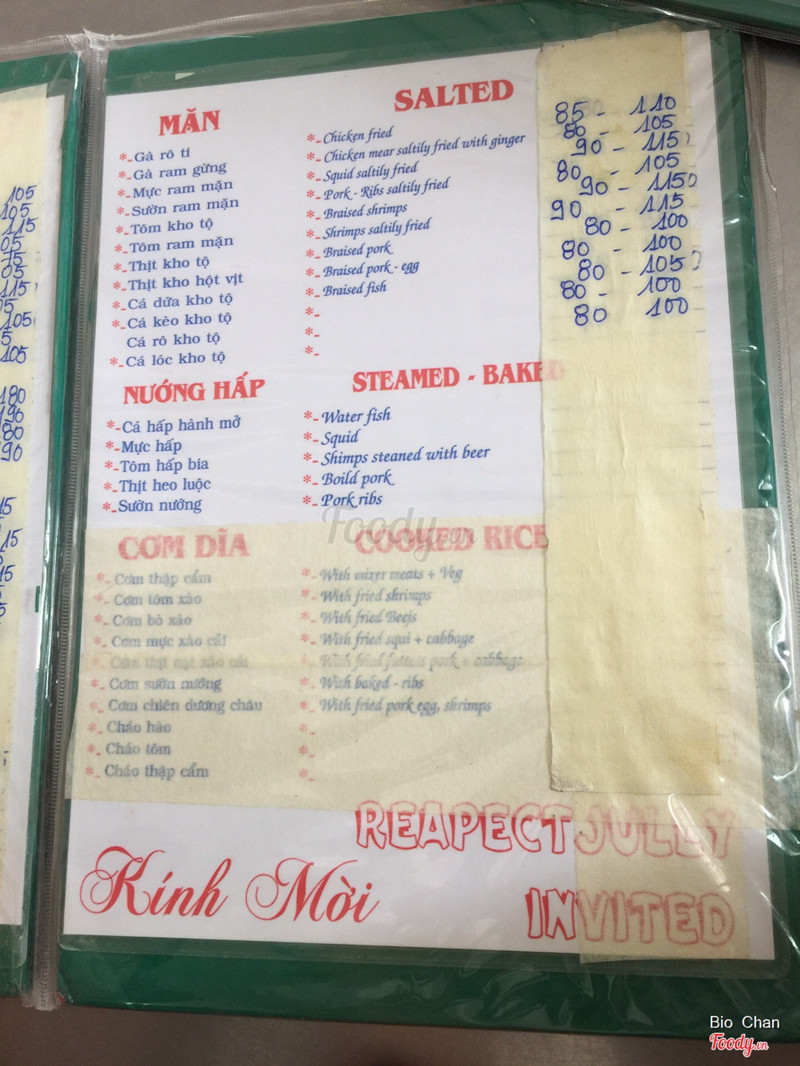 MẶN
*- Gà rô ti
*- Gà ram gừng
*- Mực ram mặn
*- Sườn ram mặn
*- Tôm kho tộ
*- Tôm ram mặn
*- Thịt kho tộ
*- Thịt kho hột vịt
*- Cá dứa kho tộ
*- Cá kèo kho tộ
Cá rô kho tộ
*- Cá lóc kho tộ
SALTED
*- Chicken fried
*- Chicken mear saltily fried with ginger
*- Squid saltily fried
*- Pork - Ribs saltily fried
*- Braised shrimps
*- Shrimps saltily fried
*- Braised pork
*- Braised pork - egg
*- Braised fish
*-
*-
*-
85 - 110
80 - 105
90 - 115
80 - 105
90 - 115
90 - 115
80 - 100
80 - 100
80 - 105
80 - 100
80 100
NƯỚNG HẤP
*- Cá hấp hành mở
*- Mực hấp
*- Tôm hấp bia
*- Thịt heo luộc
*- Sườn nướng
STEAMED - BAKED
*- Water fish
*- Squid
*- Shimps steaned with beer
*- Boild pork
*- Pork ribs
CƠM DĨA
*- Cơm thập cẩm
*- Cơm tôm xào
*- Cơm bò xào
*- Cơm mực xào cải
*- Cơm thịt nạt xào cải
*- Cơm sườn nướng
*- Cơm chiên dương châu
*- Cháo hào
*- Cháo tôm
*- Cháo thập cẩm
COOKED RICE
*- With mixer meats + Veg
*- With fried shrimps
*- With fried Beefs
*- With fried squi + cabbage
*- With fried pork + cabbage
*- With baked - ribs
*- With fried pork egg, shrimps
*-
*-
*-
REAPECTJULLY
INVITED
Kính Mời
105
105
115
105
115
105
105
180
190
180
190
Foody.vn
Bio Chan
Foody.vn